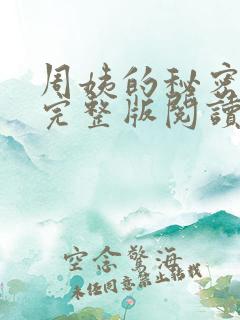 周姨的秘密
完整版閱讀
空念驚海
未经同意禁止转载